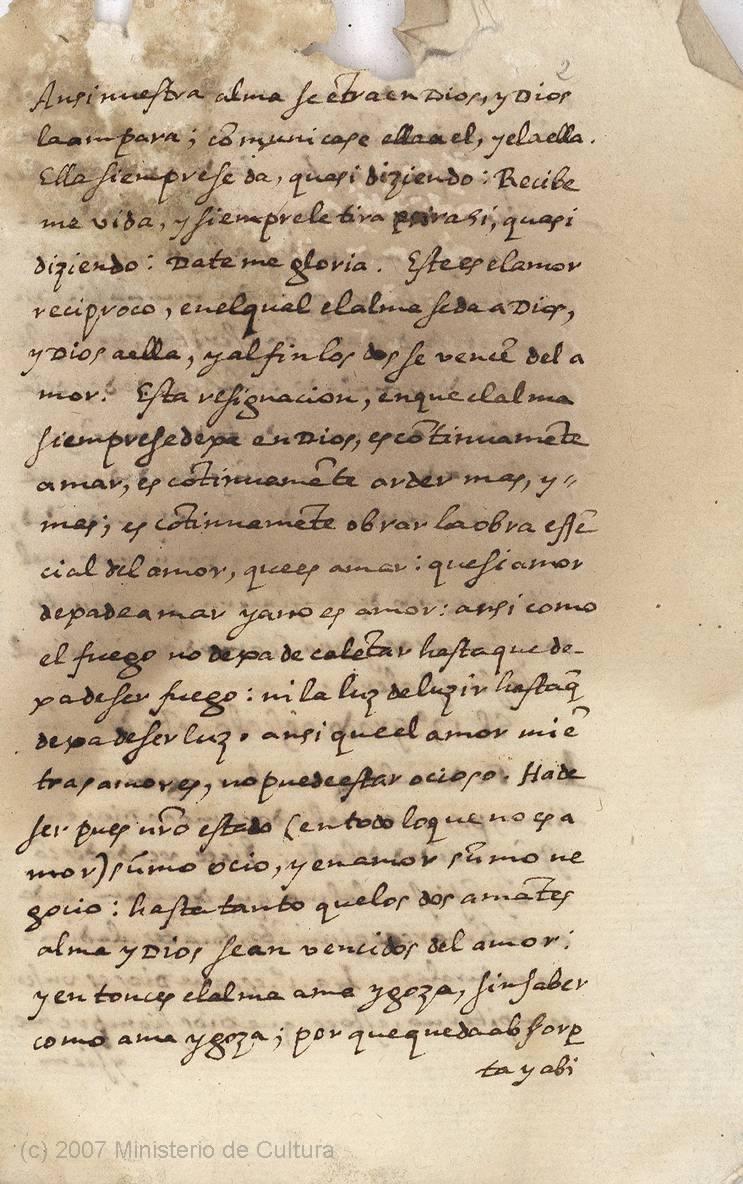 2
Ansi nuestra alma se ētra en Dios, y Dios
la ampara; comūnicase ella a el, y el a ella.
Ella siempre se da, quasi diziendo: Recibe
me vida, y siempre le tira para si, quasi
diziendo: Date me gloria. Este es el amor
reciproco, en el qual el alma se da a Dios,
y Dios a ella, y al fin los dos se vencē del a
mor. Esta resignacion, en que el alma
siempre se dexa en Dios, es cōtinuamēte
amar, es cōtinuamēte arder mas, y
mas; es cōtinuamēte obrar la obra essē
cial del amor, que es amar: que si amor
dexa de amar ya no es amor: ansi como
el fuego no dexa de calētar hasta que de-
xa de ser fuego: ni la luz de luzir hasta q̄
dexa de ser luz. ansi que el amor miē
tras amor es, no puede estar ocioso. Ha de
ser pues nr̄o estado (en todo lo que no es a
mor) sūmo ocio, y en amor sūmo ne
gocio: hasta tanto que los dos amātes
alma y Dios sean vencidos del amor:
y entonces el alma ama y goza, sin saber
como ama y goza; por que queda absorp
ta y abi
(c) 2007 Ministerio de Cultura